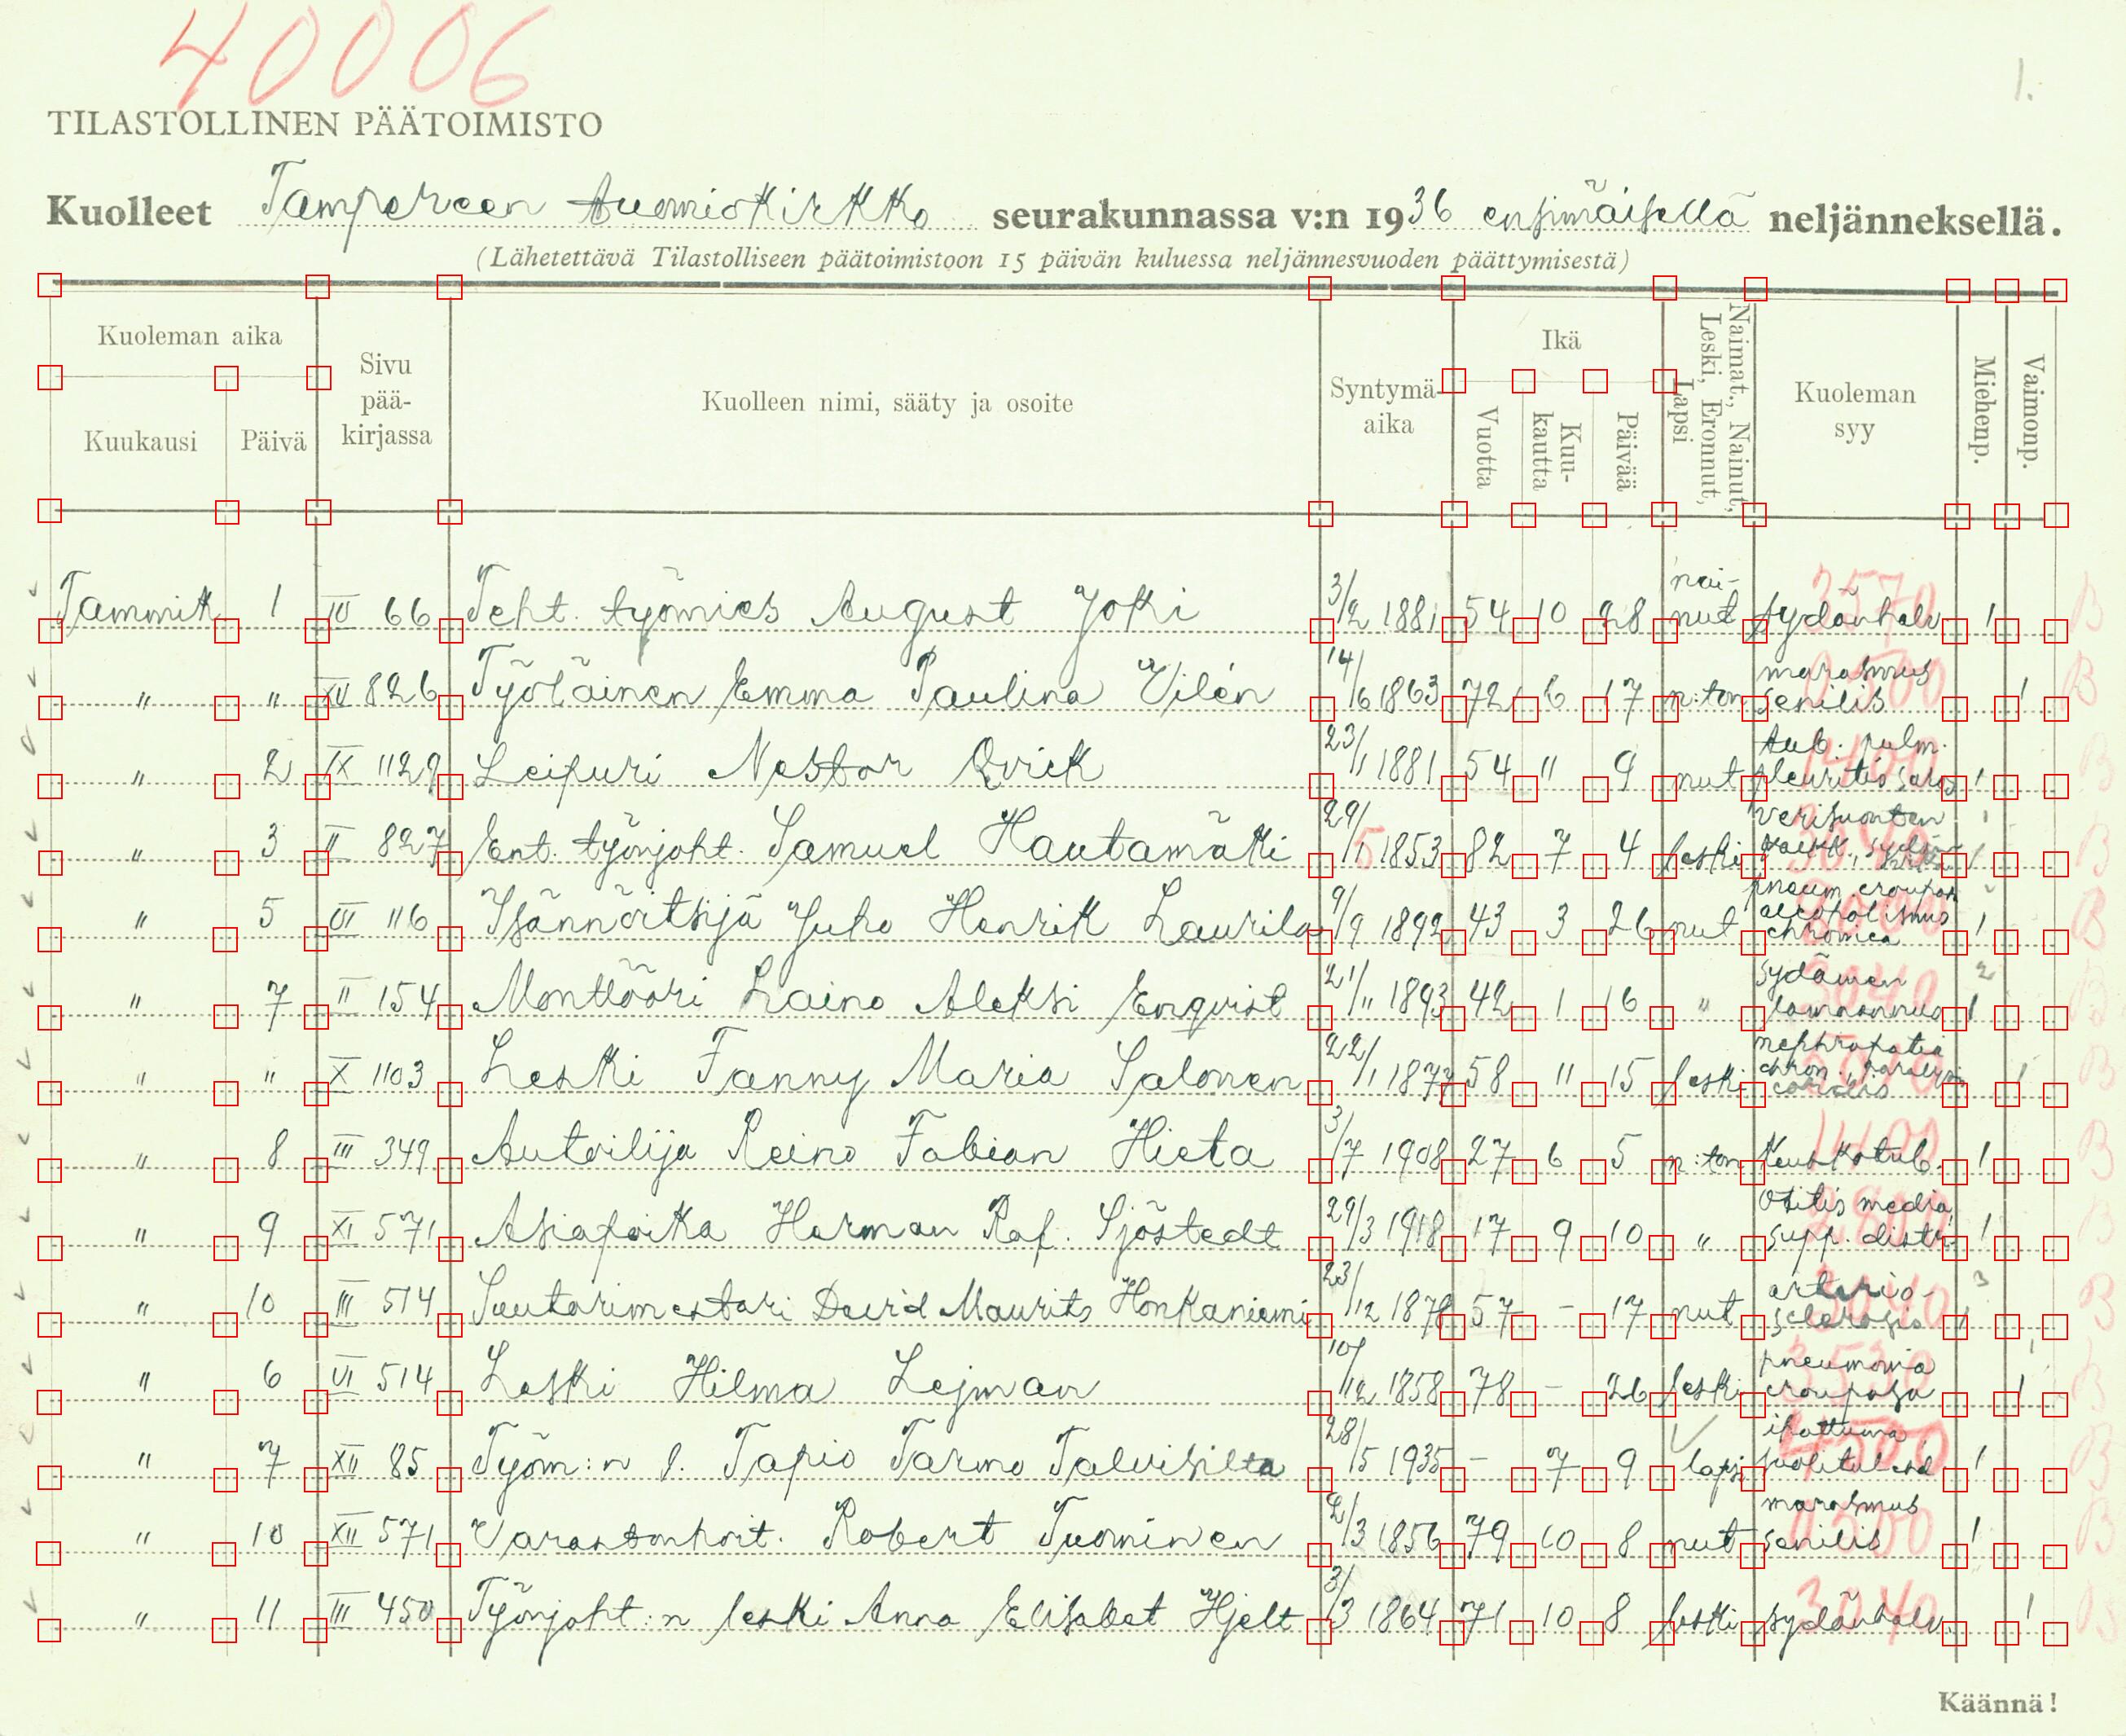 40006
1.
TILASTOLLINEN PÄÄTOIMISTO
Kuolleet Tampereen tuomiokirkko seurakunnassa v:n 1936 ensimäisellä neljänneksellä.
(Lähetettävä Tilastolliseen päätoimistoon 15 päivän kuluessa neljännesvuoden päättymisestä)
Kuoleman aika Kuukausi Päivä Sivu pää-kirjassa Kuolleen nimi, sääty ja osoite Syntymä-aika Ikä Vuotta Kuu-kautta Päivää Naimat., Nainut, Leski, Eronnut, Lapsi Kuoleman syy Miehenp. Vaimonp.
Tammik. 1 IV 66 Teht. työmies August Joki 3/2 1881 54 10 28 nai-nut sydänhalv. 1
" " XII 826 Työläinen Emma Paulina Vilén 14/6 1863 72 6 17 n:ton marasmus senilis 1
" 2 IX 1129 Leipuri Nestor Qvick 23/11 1881 54 11 9 nut tub. pulm. pleuritis 1
" 3 II 827 Ent. työnjoht. Samuel Hautamäki 29/5 1853 82 7 4 leski verisuonten 1
" 5 VI 116 Isännöitsijä Juho Henrik Laurila 9/9 1892 43 3 26 nut pneum. croupos. alcoholismus chronica 1
" 7 II 154 Monttööri Laino Aleksi Enqvist 21/11 1893 42 1 16 " sydämen 1
" " X 1103 Leski Fanny Maria Salonen 22/1 1877 58 11 15 leski nephropatia chron., cordis 1
" 8 III 349 Autoilija Reino Fabian Hieta 3/7 1908 27 6 5 n:ton Keuhkotub. 1
" 9 XI 571 Asiapoika Herman Raf. Sjöstedt 29/3 1918 17 9 10 " otitis media supp. 1
" 10 III 514 Suutarimestari David Maurits Honkaniemi 23/12 1878 57 – 17 nut arterio-sclerosis 1
" 6 VI 514 Leski Hilma Lejman 10/12 1858 78 – 26 leski pneumonia crouposa 1
" 7 XII 85 Työm:n l. Tapio Tarmo Talvisilta 28/5 1935 – 7 9 lapsi 1
" 10 XII 571 Varastonhoit. Robert Tuominen 2/3 1856 79 10 8 nut marasmus senilis 1
" 11 III 450 Työnjoht:n leski Anna Elisabet Hjelt 3/3 1864 71 10 8 leski sydänhalv. 1
Käännä!